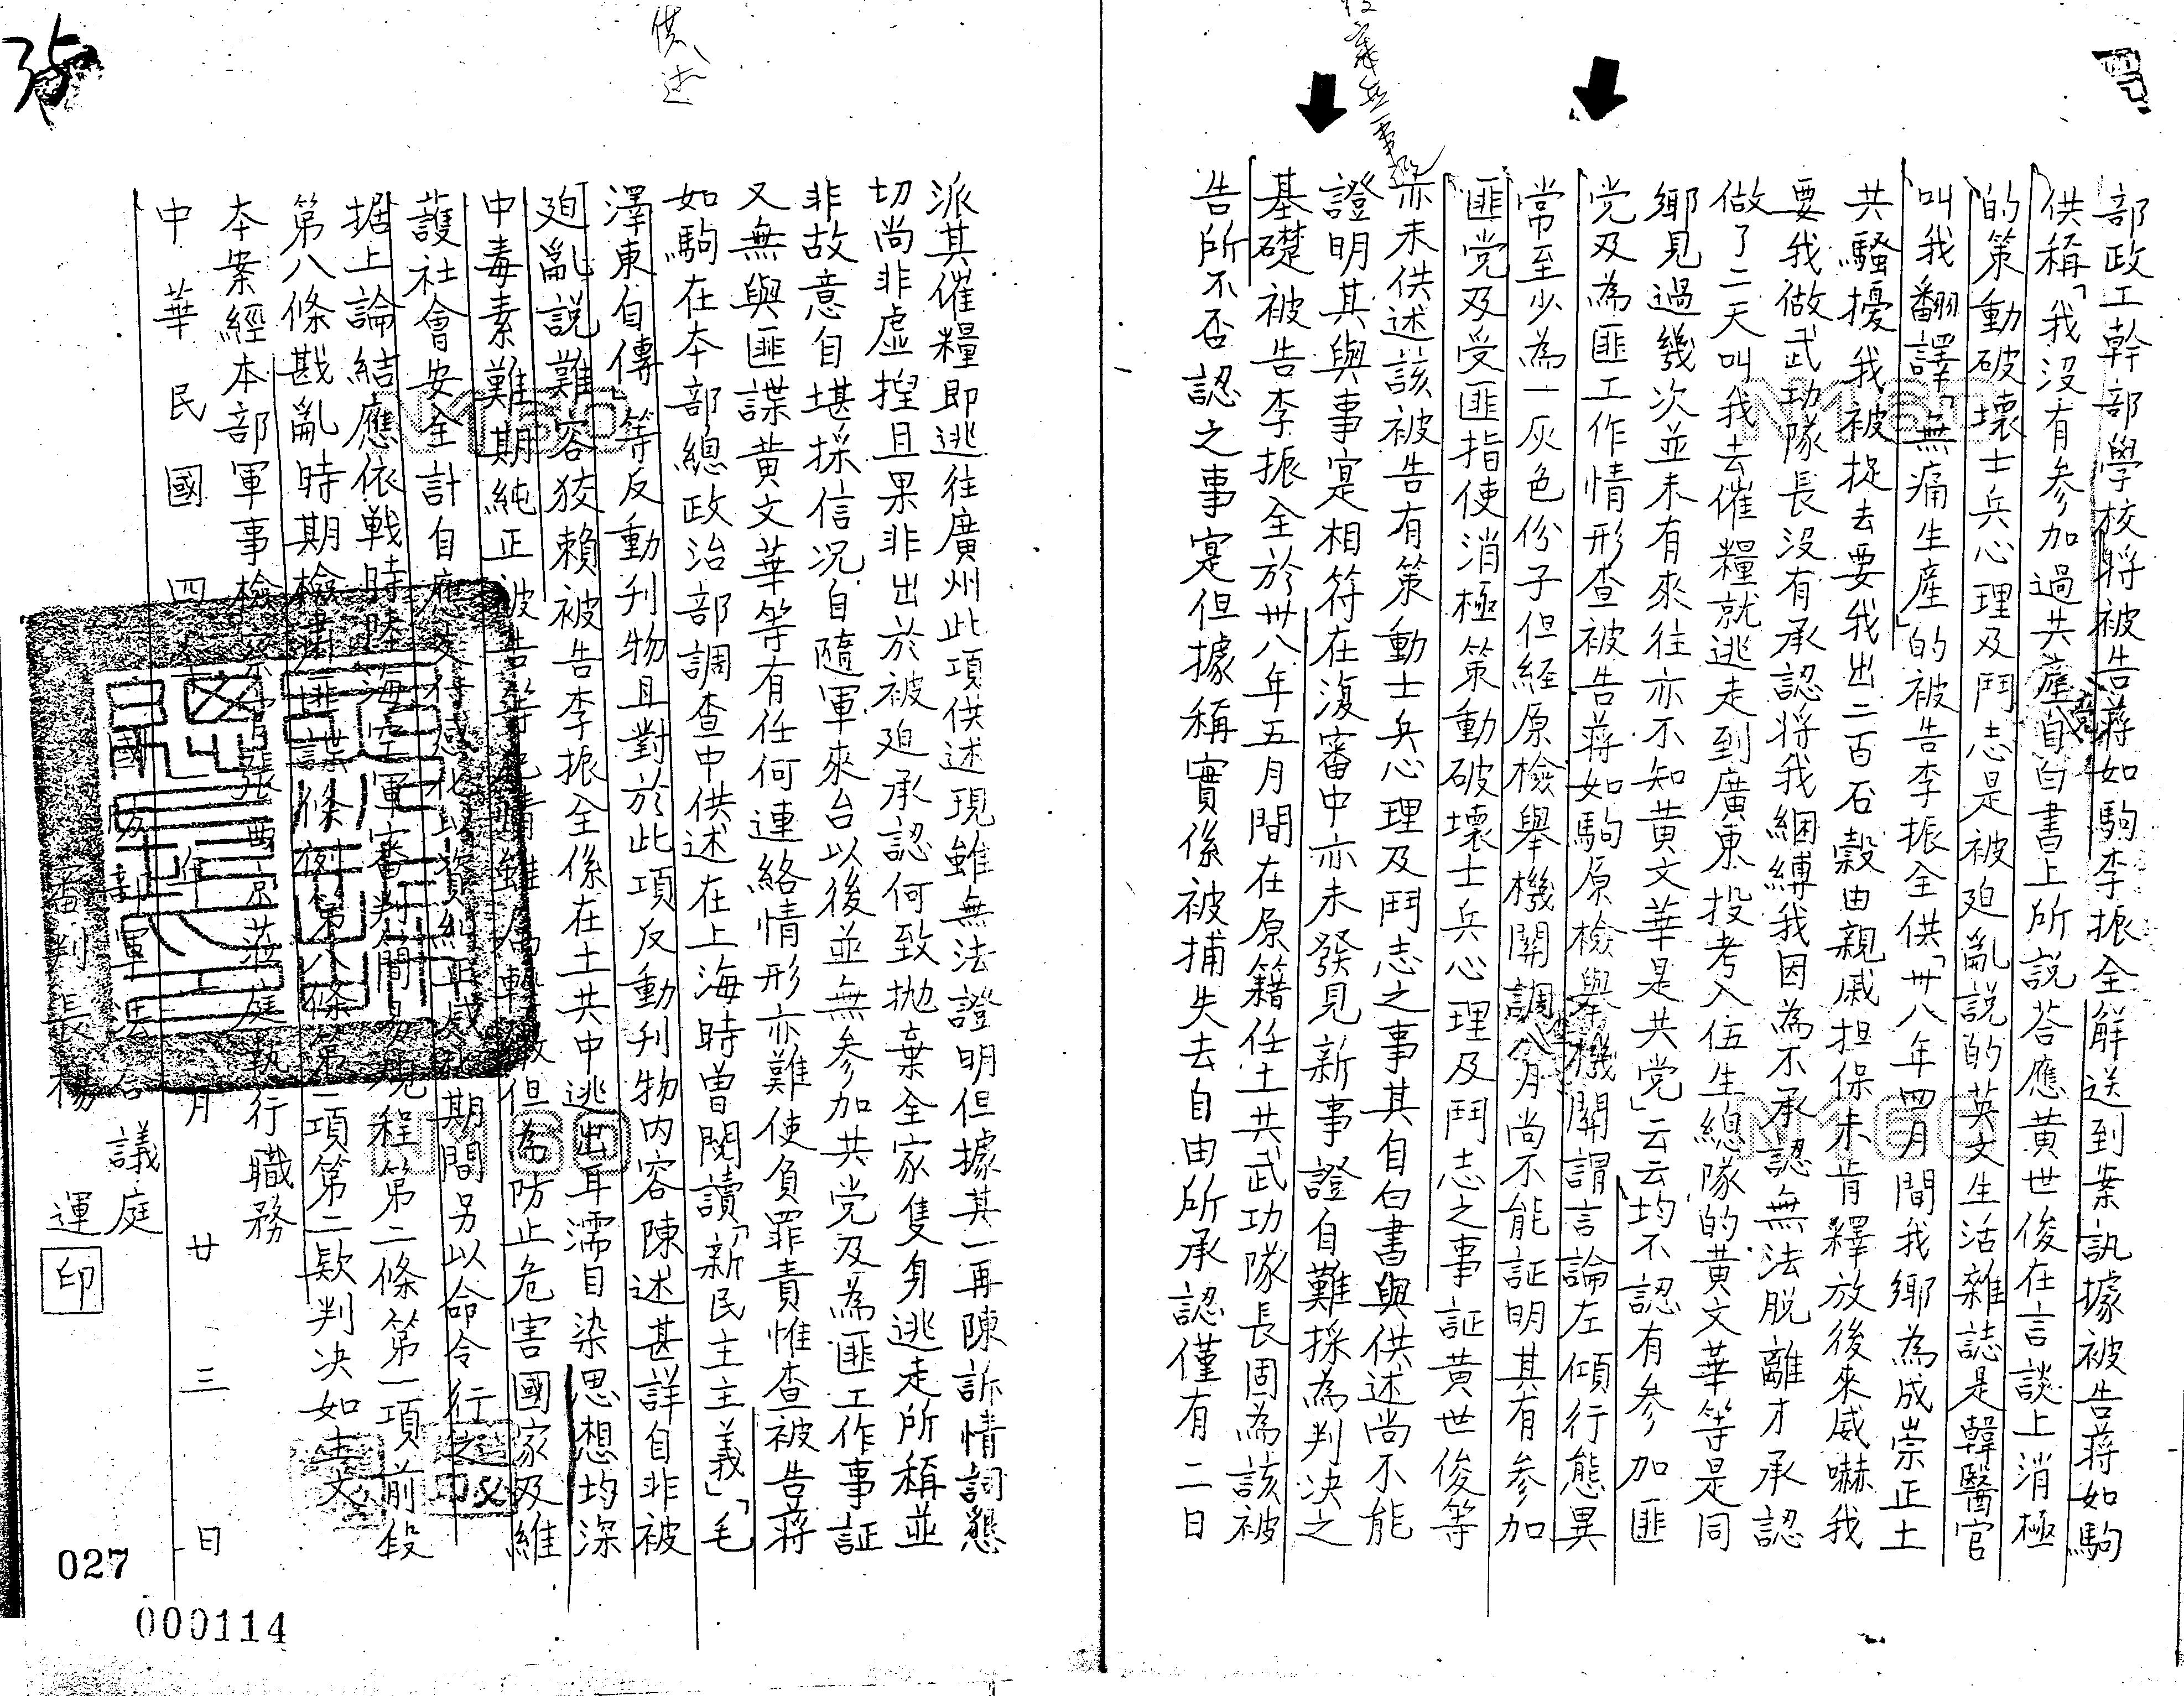 部政工幹部學校將被告蔣如駒李振全解送到案訊據被告蔣如駒
供稱「我沒有參加過共產自白書上所説荅應黃世俊在言談上消極
的策動破壞士兵心理及鬥志是被廹亂説的英文生活雜誌是韓醫官
叫我翻譯「無痛生產」的被告李振全供「卅八年四月間我鄉為成崇正土
共騷擾我被捉去要我出二百石穀由親戚担保未肯釋放後來威嚇我
要我做武功隊長沒有承認將我綑縛我因為不承認無法脱離才承認
做了二天叫我去催糧就逃走到廣東投考入伍生總隊的黃文華等是同
鄉見過幾次並未有來往亦不知黃文華是共党」云云均不認有参加匪
党及為匪工作情形查被告蔣如駒原檢舉機關謂言論左傾行態異
常至少為一灰色份子但経原檢舉機關調八月尚不能証明其有参加
匪党及受匪指使消極策動破壞士兵心理及鬥志之事証黃世俊等
亦未供述該被告有策動士兵心理及鬥志之事其自白書與供述尚不能
證明其與事寔相符在復審中亦未發見新事證自難採為判決之
基礎被告李振全於卅八年五月間在原籍任土共武功隊長固為該被
告所不否認之事寔但據稱實係被捕失去自由所承認僅有二日
派其催糧即逃往廣州此項供述現雖無法證明但據其一再陳訴情詞懇
切尚非虛揑且果非出於被廹承認何致抛棄全家隻身逃走所稱並
非故意自堪採信況自隨軍來台以後並無参加共党及為匪工作事証
又無與匪諜黃文華等有任何連絡情形亦難使負罪責惟查被告蔣
如駒在本部總政治部調查中供述在上海時曾閱讀「新民主主義」「毛
澤東自傳」等反動刋物且對於此項反動刋物内容陳述甚詳自非被
廹亂説難容狡賴被告李振全係在土共中逃出耳濡目染思想均深
中毒素難期純正被告等犯情雖屬輕微但為防止危害國家及維
護社會安全計自應交付感化以資糾正感化期間另以命令行之
据上論結應依戰時陸海空軍審判簡易規程第二條第一項前段
第八條戡亂時期檢肅匪諜條例第八條第一項第二欵判决如主文
本案經本部軍事檢察官張西京蒞庭執行職務
中華民國四十年月廿三日
國防部軍法合議庭
審判長楊運
印
供述
35
027
000114
N160
N160
N160
N160